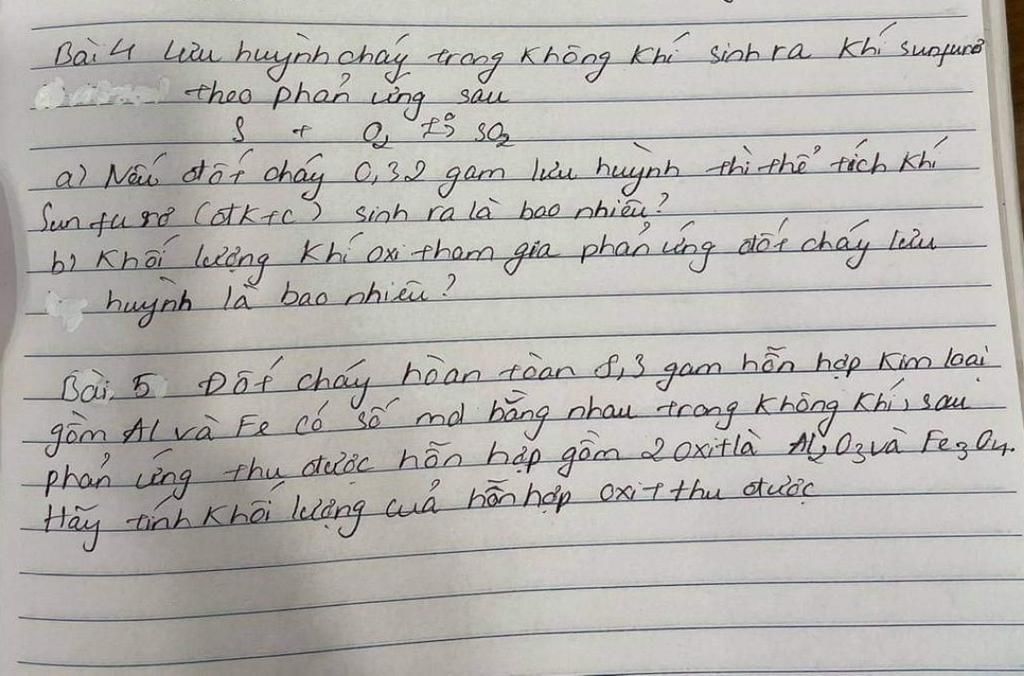 Bài 4 Lưu huỳnh cháy trong không khí sinh ra khí sunfurơ
theo phản ứng sau
S + O2 t° SO2
a) Nếu đốt cháy 0,32 gam lưu huỳnh thì thể tích khí
Sunfurơ (đktc) sinh ra là bao nhiêu?
b) Khối lượng khí oxi tham gia phản ứng đốt cháy lưu
huỳnh là bao nhiêu?
Bài 5 Đốt cháy hoàn toàn 8,3 gam hỗn hợp kim loại
gồm Al và Fe có số mol bằng nhau trong không khí, sau
phản ứng thu được hỗn hợp gồm 2 oxit là Al2O3 và Fe3O4.
Hãy tính khối lượng của hỗn hợp oxit thu được